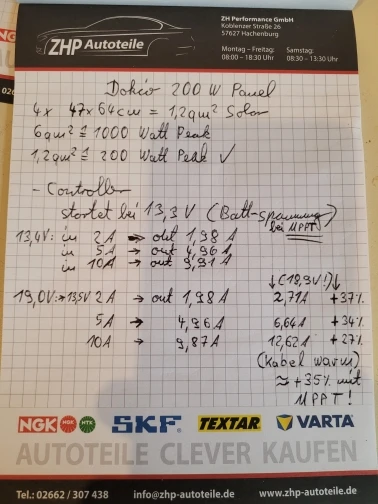 ZHP Autoteile
ZH Performance GmbH
Koblenzer Straße 26
57627 Hachenburg
Montag – Freitag: Samstag:
08:00 – 18:30 Uhr 08:30 – 13:30 Uhr
Dokio 200 W Panel
4x 47x64cm = 1,2qm² Solar
6qm² ≙ 1000 Watt Peak
1,2qm² ≙ 200 Watt Peak ✓
- Controller
startet bei 13,3 V (Batt-spannung
bei MPPT)
13,4V: in 2A → out 1,98 A
in 5A → out 4,96 A
in 10A → out 9,91 A
↓(18,9V!)↓
19,0V:→13,5V 2A → out 1,98A 2,71A +37%
5A → 4,96A 6,64A +34%
10A → 9,87A 12,62A +27%
(Kabel warm)
≈ +35% mit
MPPT!
NGK NGK NTK SKF TEXTAR VARTA
AUTOTEILE CLEVER KAUFEN
Tel.: 02662 / 307 438 info@zhp-autoteile.de www.zhp-autoteile.de